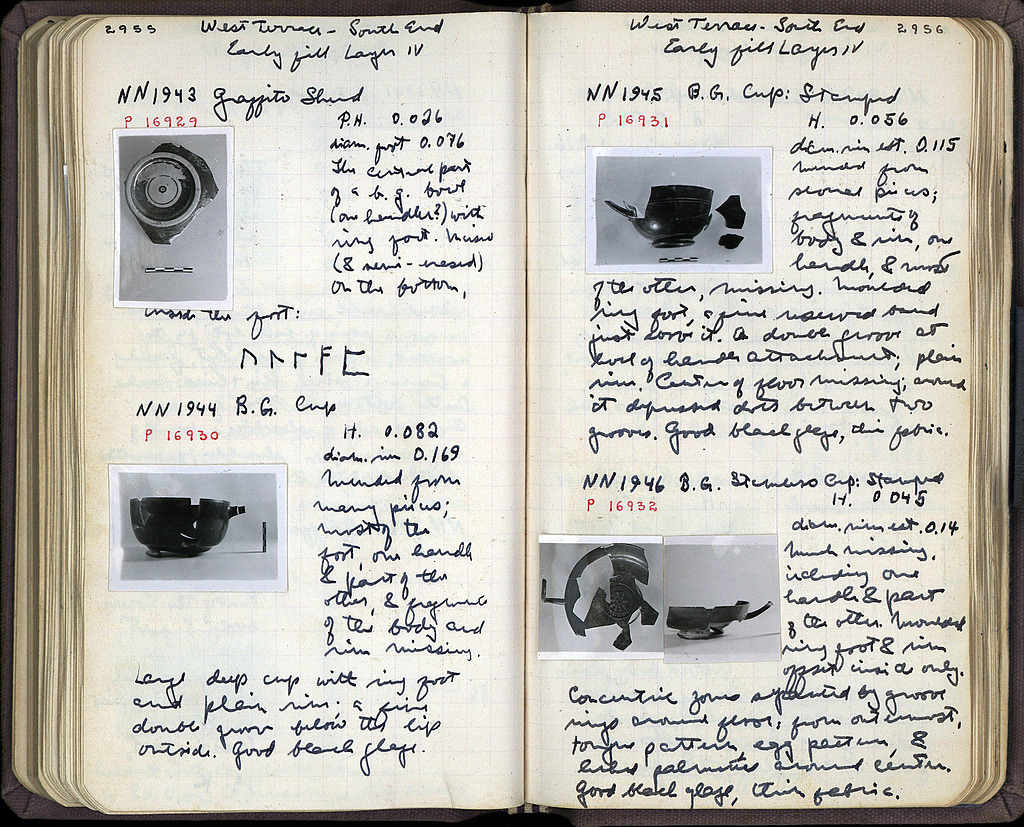 2955
West Terrace - South End
Early fill Layer IV
NN 1943 Graffito Sherd
P 16929
P.H. 0.026
diam. foot 0.076
The central part
of a b.g. bowl
(one handler?) with
ring foot. Incised
(& semi-erased)
on the bottom,
inside the foot:
NN 1944 B.G. Cup
P 16930
H. 0.082
diam. rim 0.169
Mended from
many pieces;
most of the
foot, one handle
& part of the
other, & fragments
of the body and
rim missing.
Large deep cup with ring foot
and plain rim; a fine
double groove below the lip
outside. Good black glaze.
2956
West Terrace - South End
Early fill Layer IV
NN 1945 B.G. Cup: Stamped
P 16931
H. 0.056
diam. rim est. 0.115
Mended from
several pieces;
fragments of
body & rim, one
handle, & most
of the other, missing. Moulded
ring foot, a fine reserved band
just above it. A double groove at
level of handle attachment; plain
rim. Center of floor missing; around
it depressed dots between two
grooves. Good black glaze, thin fabric.
NN 1946 B.G. Stemless Cup: Stamped
P 16932
H. 0.045
diam. rim est. 0.14
Much missing,
including one
handle & part
of the other. Moulded
ring foot & rim
offset inside only.
Concentric zones separated by groove
rings around floor; from outermost,
tongue pattern, egg pattern, &
linked palmettes around center.
Good black glaze, thin fabric.